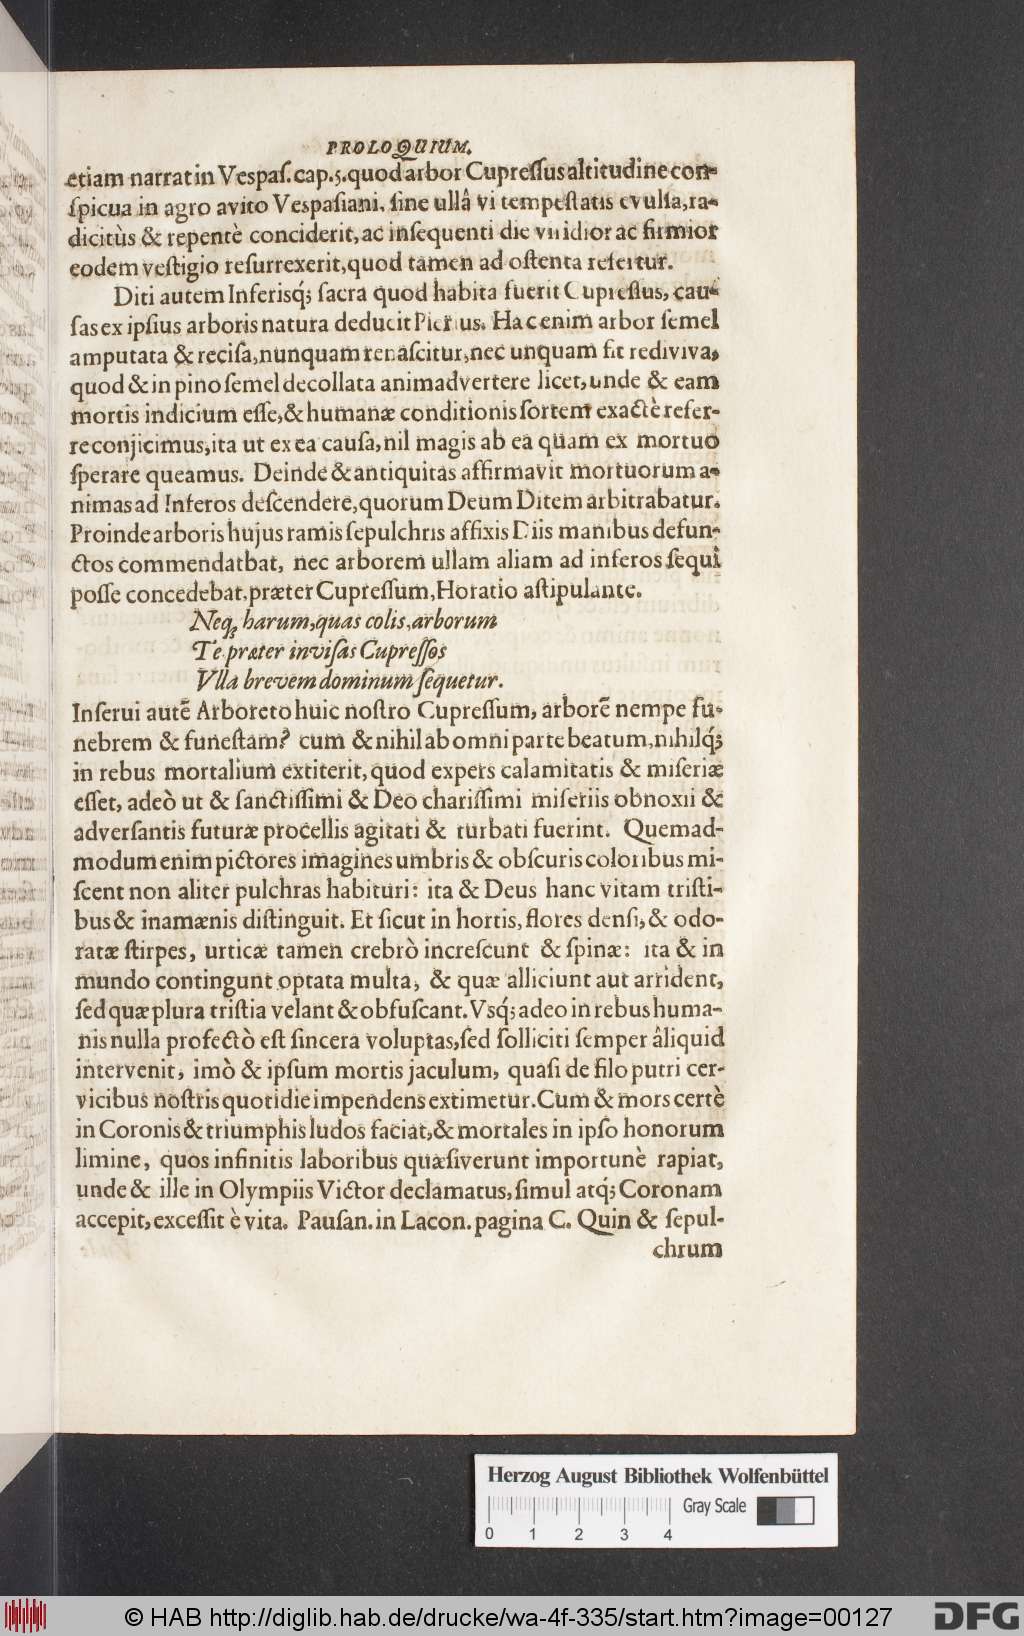 PROLOQUIUM.
etiam narrat in Vespaſ. cap. 5. quod arbor Cupreſſus altitudine con-
ſpicua in agro avito Vespaſiani, ſine ullâ vi tempeſtatis evulſa, ra-
dicitùs & repentè conciderit, ac inſequenti die viridior ac firmior
eodem veſtigio reſurrexerit, quod tamen ad oſtenta refertur.
Diti autem Inferisq́; ſacra quod habita fuerit Cupreſſus, cau-
ſas ex ipſius arboris natura deducit Pierius. Hac enim arbor ſemel
amputata & reciſa, nunquam renaſcitur, nec unquam fit rediviva,
quod & in pino ſemel decollata animadvertere licet, unde & eam
mortis indicium eſſe, & humanæ conditionis ſortem exactè refer-
re conjicimus, ita ut ex ea cauſa, nil magis ab ea quam ex mortuo
ſperare queamus. Deinde & antiquitas affirmavit mortuorum a-
nimas ad Inferos deſcendere, quorum Deum Ditem arbitrabatur.
Proinde arboris hujus ramis ſepulchris affixis Diis manibus defun-
ctos commendatbat, nec arborem ullam aliam ad inferos ſequi
poſſe concedebat, præter Cupreſſum, Horatio aſtipulante.
Neq; harum, quas colis, arborum
Te præter inviſas Cupreſſos
Ulla brevem dominum ſequetur.
Inſerui autẽ Arboreto huic noſtro Cupreſſum, arborẽ nempe fu-
nebrem & funeſtam? cum & nihil ab omni parte beatum, nihilq́;
in rebus mortalium extiterit, quod expers calamitatis & miſeriæ
eſſet, adeò ut & ſanctiſſimi & Deo chariſſimi miſeriis obnoxii &
adverſantis futuræ procellis agitati & turbati fuerint. Quemad-
modum enim pictores imagines umbris & obſcuris coloribus mi-
ſcent non aliter pulchras habituri: ita & Deus hanc vitam triſti-
bus & inamænis diſtinguit. Et ſicut in hortis, flores denſi, & odo-
ratæ ſtirpes, urticæ tamen crebrò increſcunt & ſpinæ: ita & in
mundo contingunt optata multa, & quæ alliciunt aut arrident,
ſed quæ plura triſtia velant & obfuſcant. Vsq́; adeo in rebus huma-
nis nulla profectò eſt ſincera voluptas, ſed ſolliciti ſemper âliquid
intervenit, imò & ipſum mortis jaculum, quaſi de filo putri cer-
vicibus noſtris quotidie impendens extimetur. Cum & mors certè
in Coronis & triumphis ludos faciat, & mortales in ipſo honorum
limine, quos infinitis laboribus quæſiverunt importunè rapiat,
unde & ille in Olympiis Victor declamatus, ſimul atq́; Coronam
accepit, exceſſit è vita. Pauſan. in Lacon. pagina C. Quin & ſepul-
chrum
Herzog August Bibliothek Wolfenbüttel
Gray Scale
0 1 2 3 4
© HAB http://diglib.hab.de/drucke/wa-4f-335/start.htm?image=00127
DFG